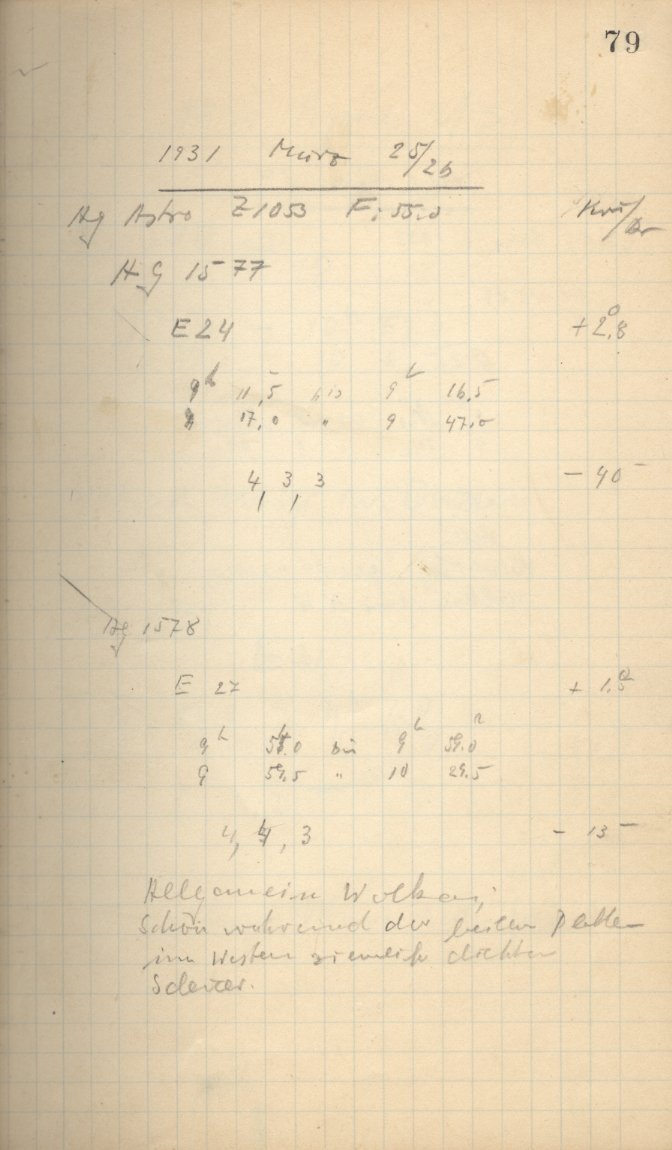 79
1931 März 25/26
Ag Astro Z1053 F: 55.0 Krü/Br
AG 1577
E 24 +2°.8
9h 11,5 bis 9h 16.5
9 17.0 " 9 47.0
4, 3, 3 - 40 -
Ag 1578
E 27 + 1.°5
9h 54.0 bis 9h 59.0
9 59.5 " 10 29.5
4, 4, 3 - 13 -
Allgemein Wolken;
Schon während der letzten Platten
im Westen ziemlich dichter
Schleier.